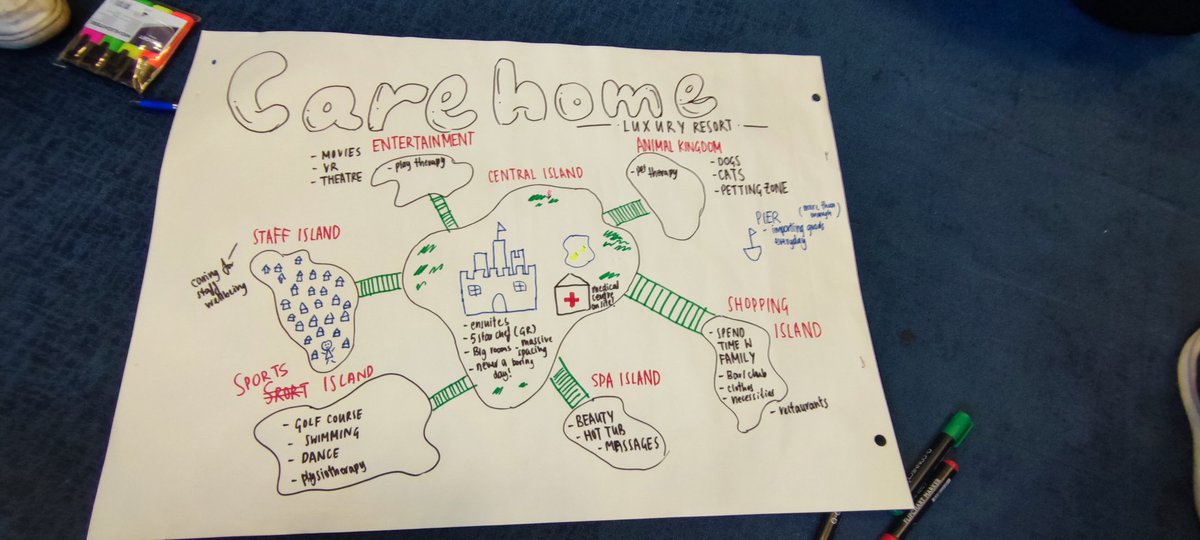 Care home
LUXURY RESORT
ENTERTAINMENT
- MOVIES
- VR
- THEATRE
- play therapy
CENTRAL ISLAND
ANIMAL KINGDOM
- pet therapy
- DOGS
- CATS
- PETTING ZONE
PIER
(more than
enough)
- importing goods
everyday
STAFF ISLAND
caring for
staff
wellbeing
medical
centre
on site!
- ensuites
- 5 star chef (GR)
- Big rooms - massive
spacing
- never a boring
day!
SHOPPING
ISLAND
- SPEND
TIME W
FAMILY
- Bar/club
- clothes
- necessities
- restaurants
SPORTS
SPORT ISLAND
- GOLF COURSE
- SWIMMING
- DANCE
- physiotherapy
SPA ISLAND
- BEAUTY
- HOT TUB
- MASSAGES